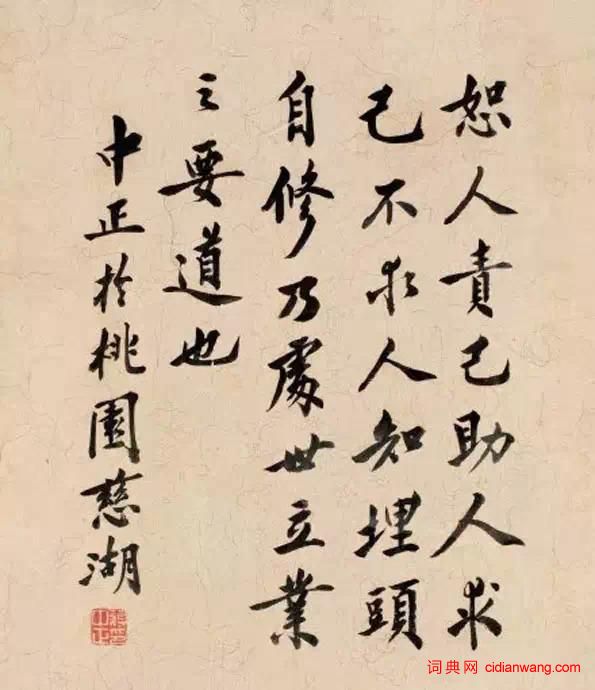 恕人責己助人求
己不求人知埋頭
自修乃處世立業
之要道也
中正於桃園慈湖
词典网 cidianwang.com